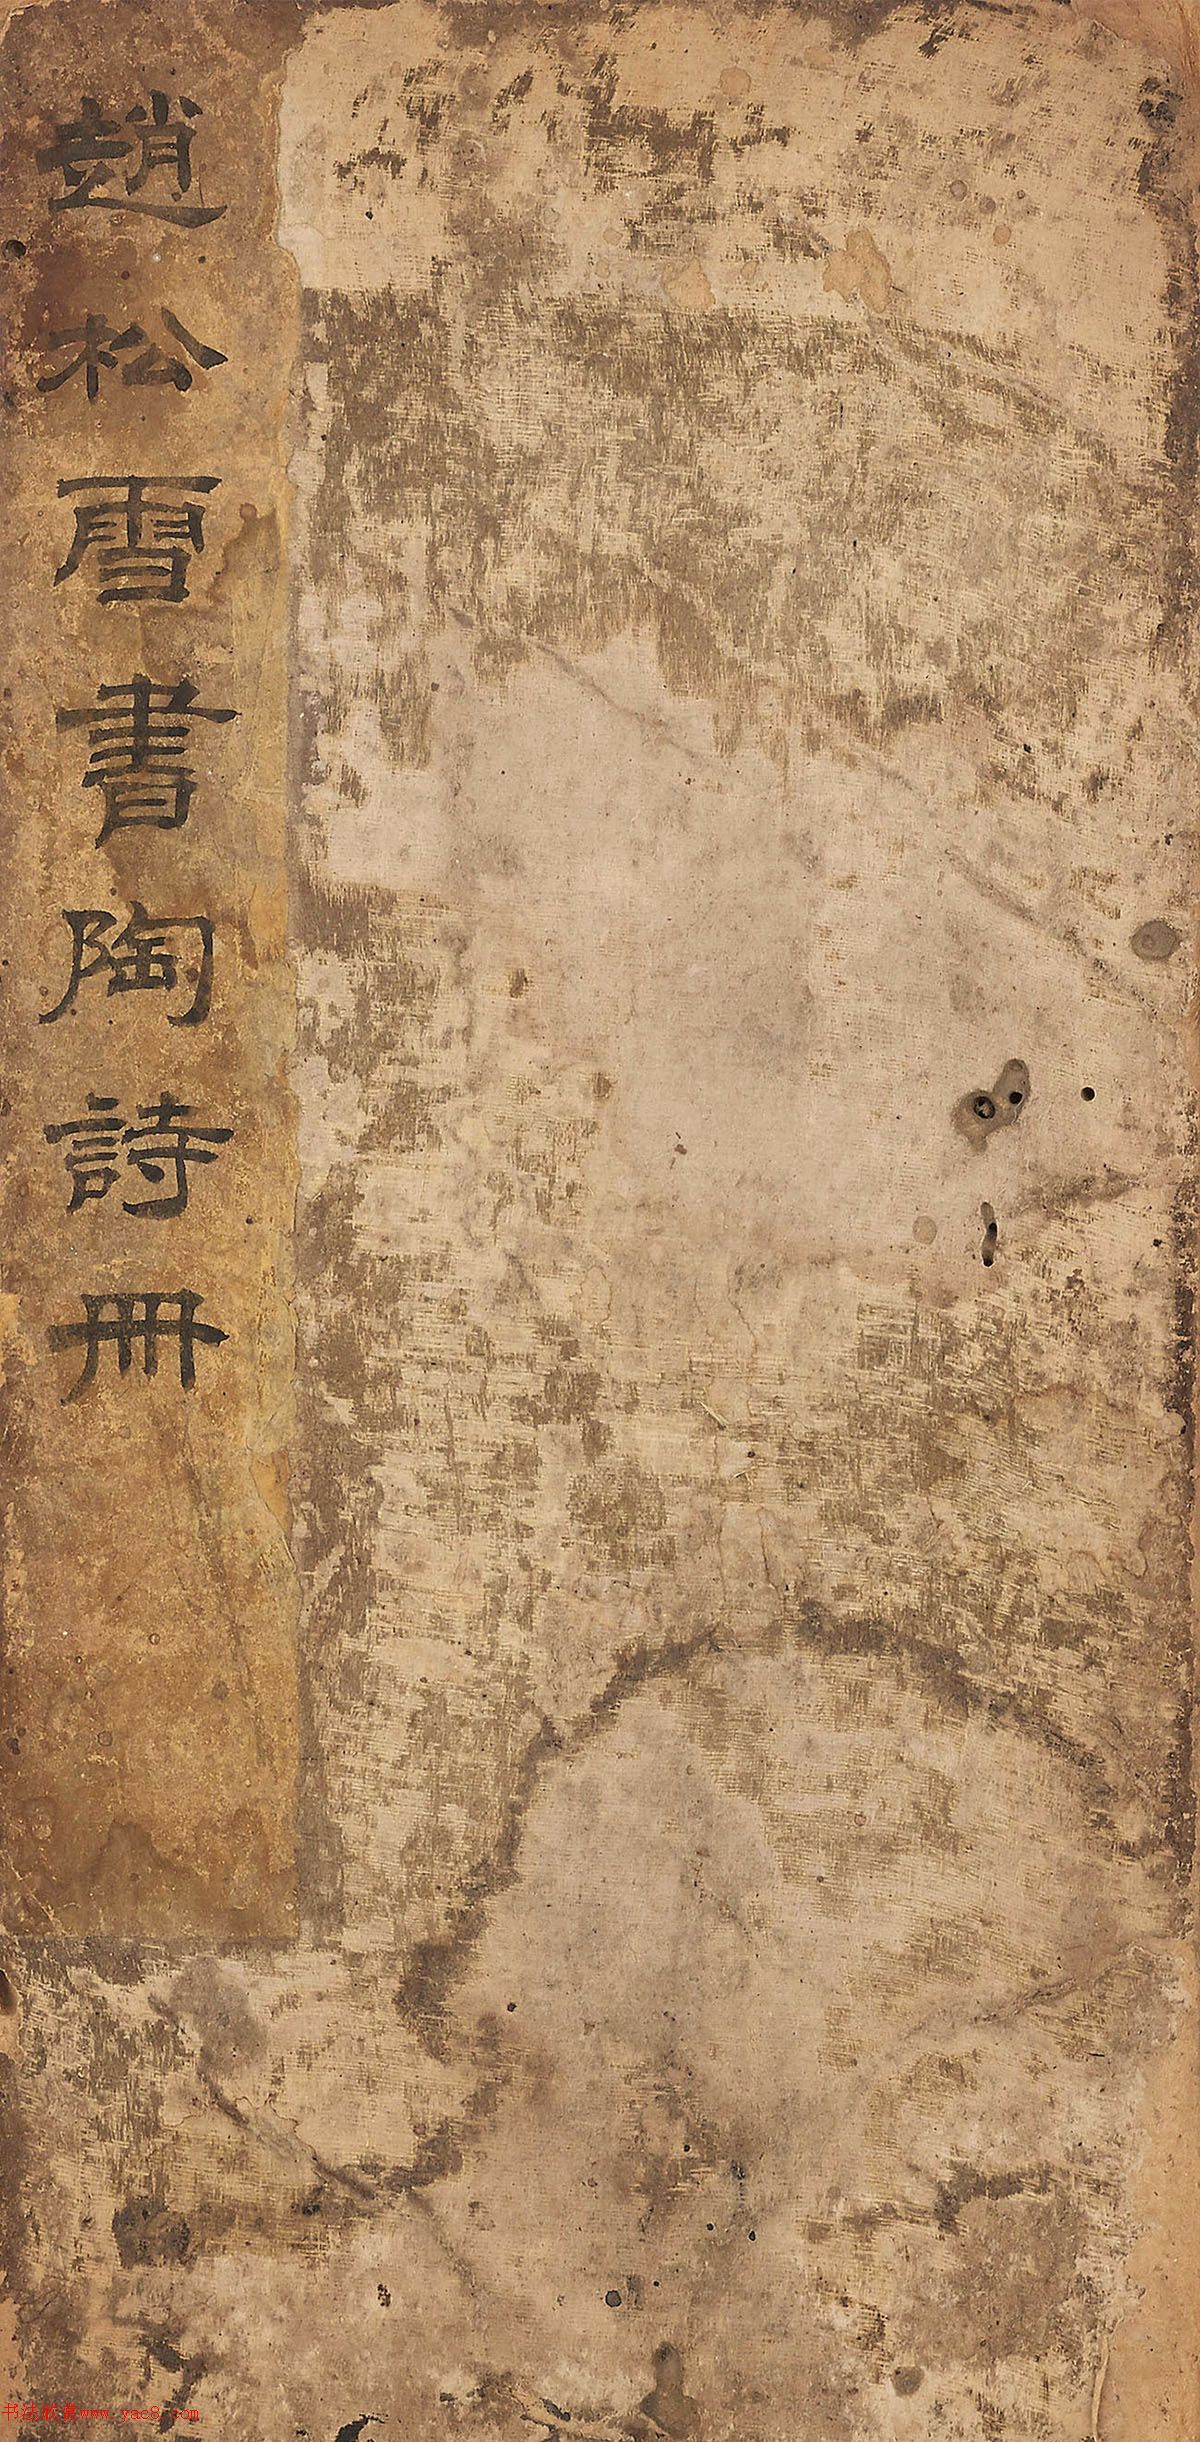 趙松雪書陶詩冊
书法欣赏www.yac8.com